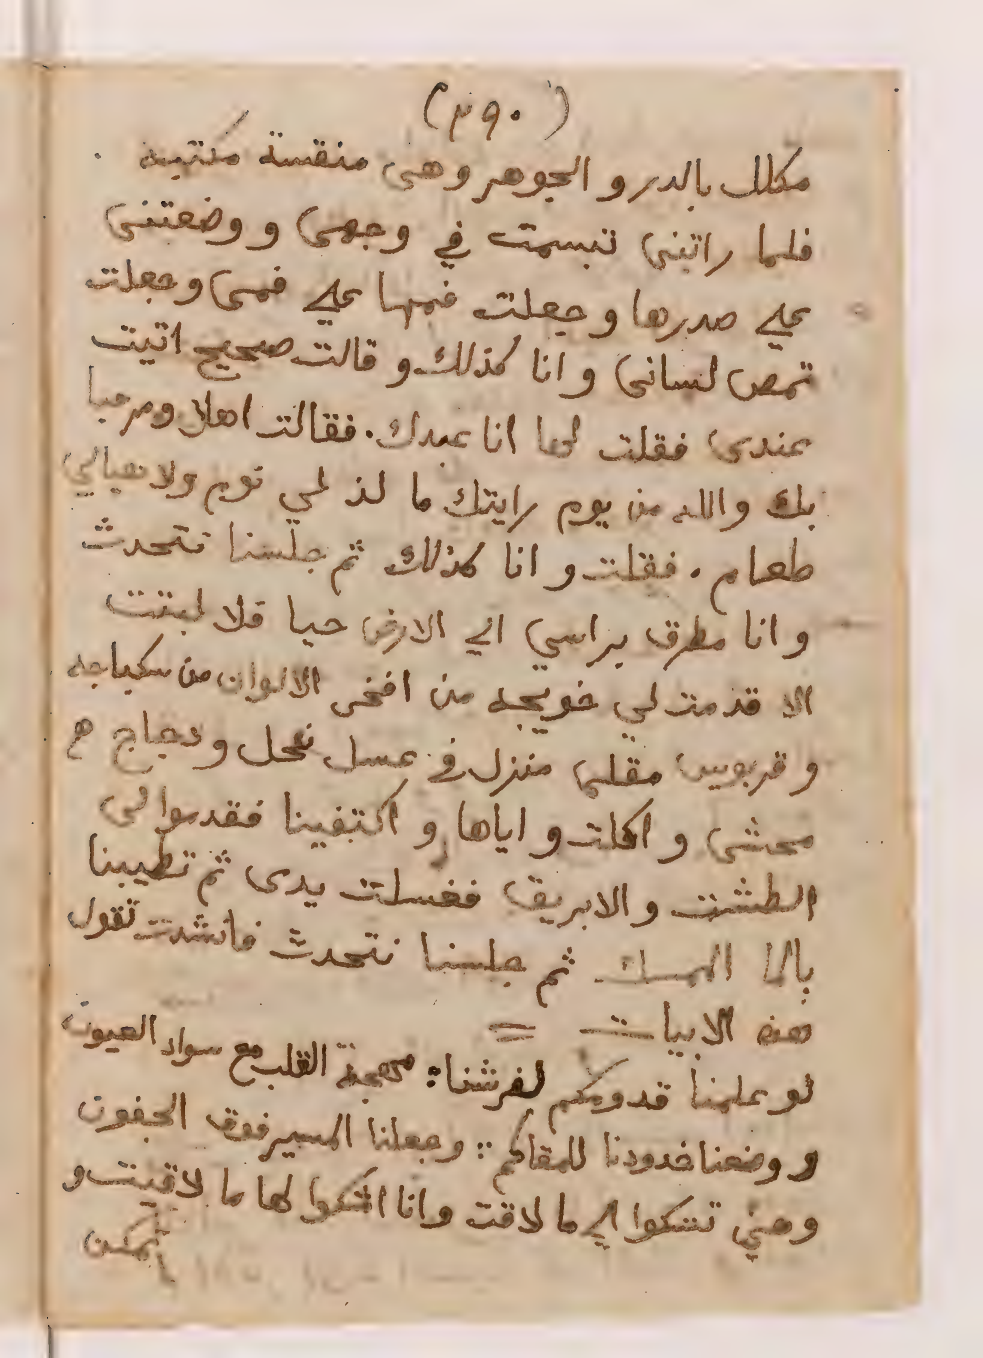 (٣٩٠)
مكلل بالدر و الجوهر وهى منقسة مكتبه
فلما راتنى تبسمت في وجهى و وضعتنى
على صدرها و جعلت فمها على فمى وجعلت
تمص لسانى و انا كذلك و قالت صحيح اتيت
عندى فقلت لها انا عبدك. فقالت اهلا ومرحبا
بك والله من يوم رايتك ما لذ لي نوم ولا هنالي
طعام . فقلت و انا كذلك ثم جلسنا نتحدث
و انا مطرق براسي الي الارض حيا فلا لبثت
الا قدمت لي خويجه من افخر الالوان من سكباجه
و قربوس مقلى منزل في عسل نحل ودجاج
محشى و اكلت و اياها و اكتفينا فقدموا لى
الطشت و الابريق فغسلت يدى ثم تطيبنا
بالما الممسك ثم جلسنا نتحدث فانشدت تقول
هذه الابيات =
لو علمنا قدومكم لفرشنا : مهجة القلب مع سواد العيون
و وضعنا خدودنا للمقاكم : وجعلنا المسير فوق الجفون
وهي تشكوا الي ما لاقت وانا اشكوا لها ما لاقيت و
تمكن